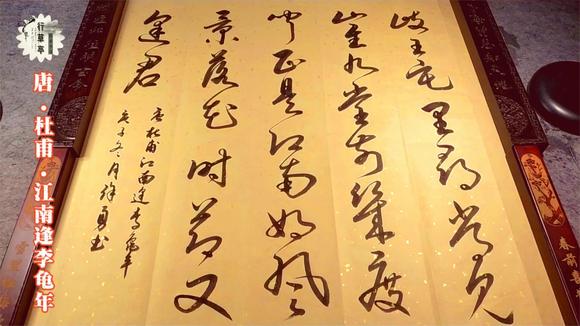 唐·杜甫·江南逢李龟年
岐王宅里寻常见
崔九堂前几度
闻正是江南好风
景落花时节又
逢君
唐杜甫江南逢李龟年